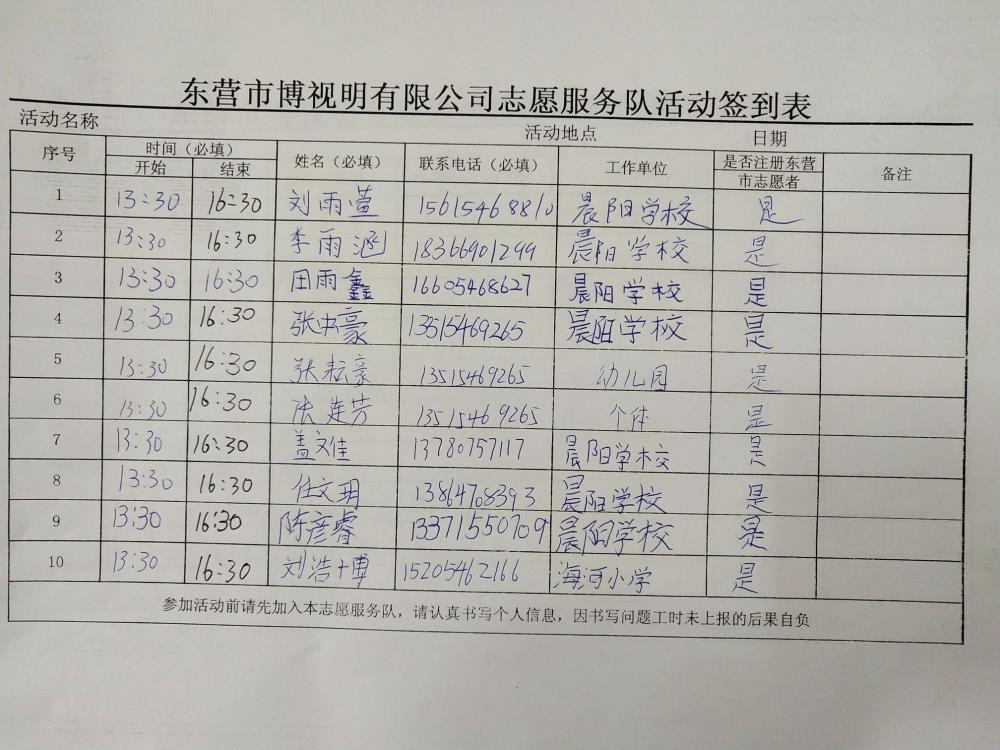 东营市博视明有限公司志愿服务队活动签到表
活动名称 活动地点 日期
序号 时间（必填） 姓名（必填） 联系电话（必填） 工作单位 是否注册东营市志愿者 备注
开始 结束
1 13:30 16:30 刘雨萱 15615468810 晨阳学校 是
2 13:30 16:30 李雨涵 18366901299 晨阳学校 是
3 13:30 16:30 田雨鑫 16605468627 晨阳学校 是
4 13:30 16:30 张中豪 13515469265 晨阳学校 是
5 13:30 16:30 张耘豪 13515469265 幼儿园 是
6 13:30 16:30 张莲芳 13515469265 个体 是
7 13:30 16:30 盖文佳 13780757117 晨阳学校 是
8 13:30 16:30 任文玥 13864708393 晨阳学校 是
9 13:30 16:30 陈彦睿 13371550709 晨阳学校 是
10 13:30 16:30 刘浩博 15205462166 海河小学 是
参加活动前请先加入本志愿服务队，请认真书写个人信息，因书写问题工时未上报的后果自负